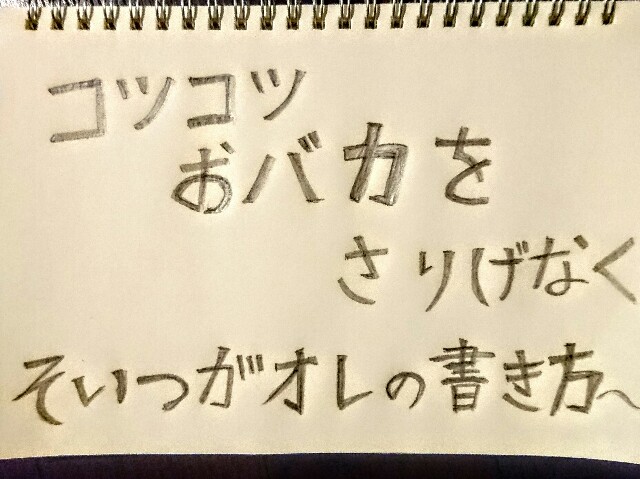 コツコツ
おバカを
さりげなく
そいつがオレの書き方〜